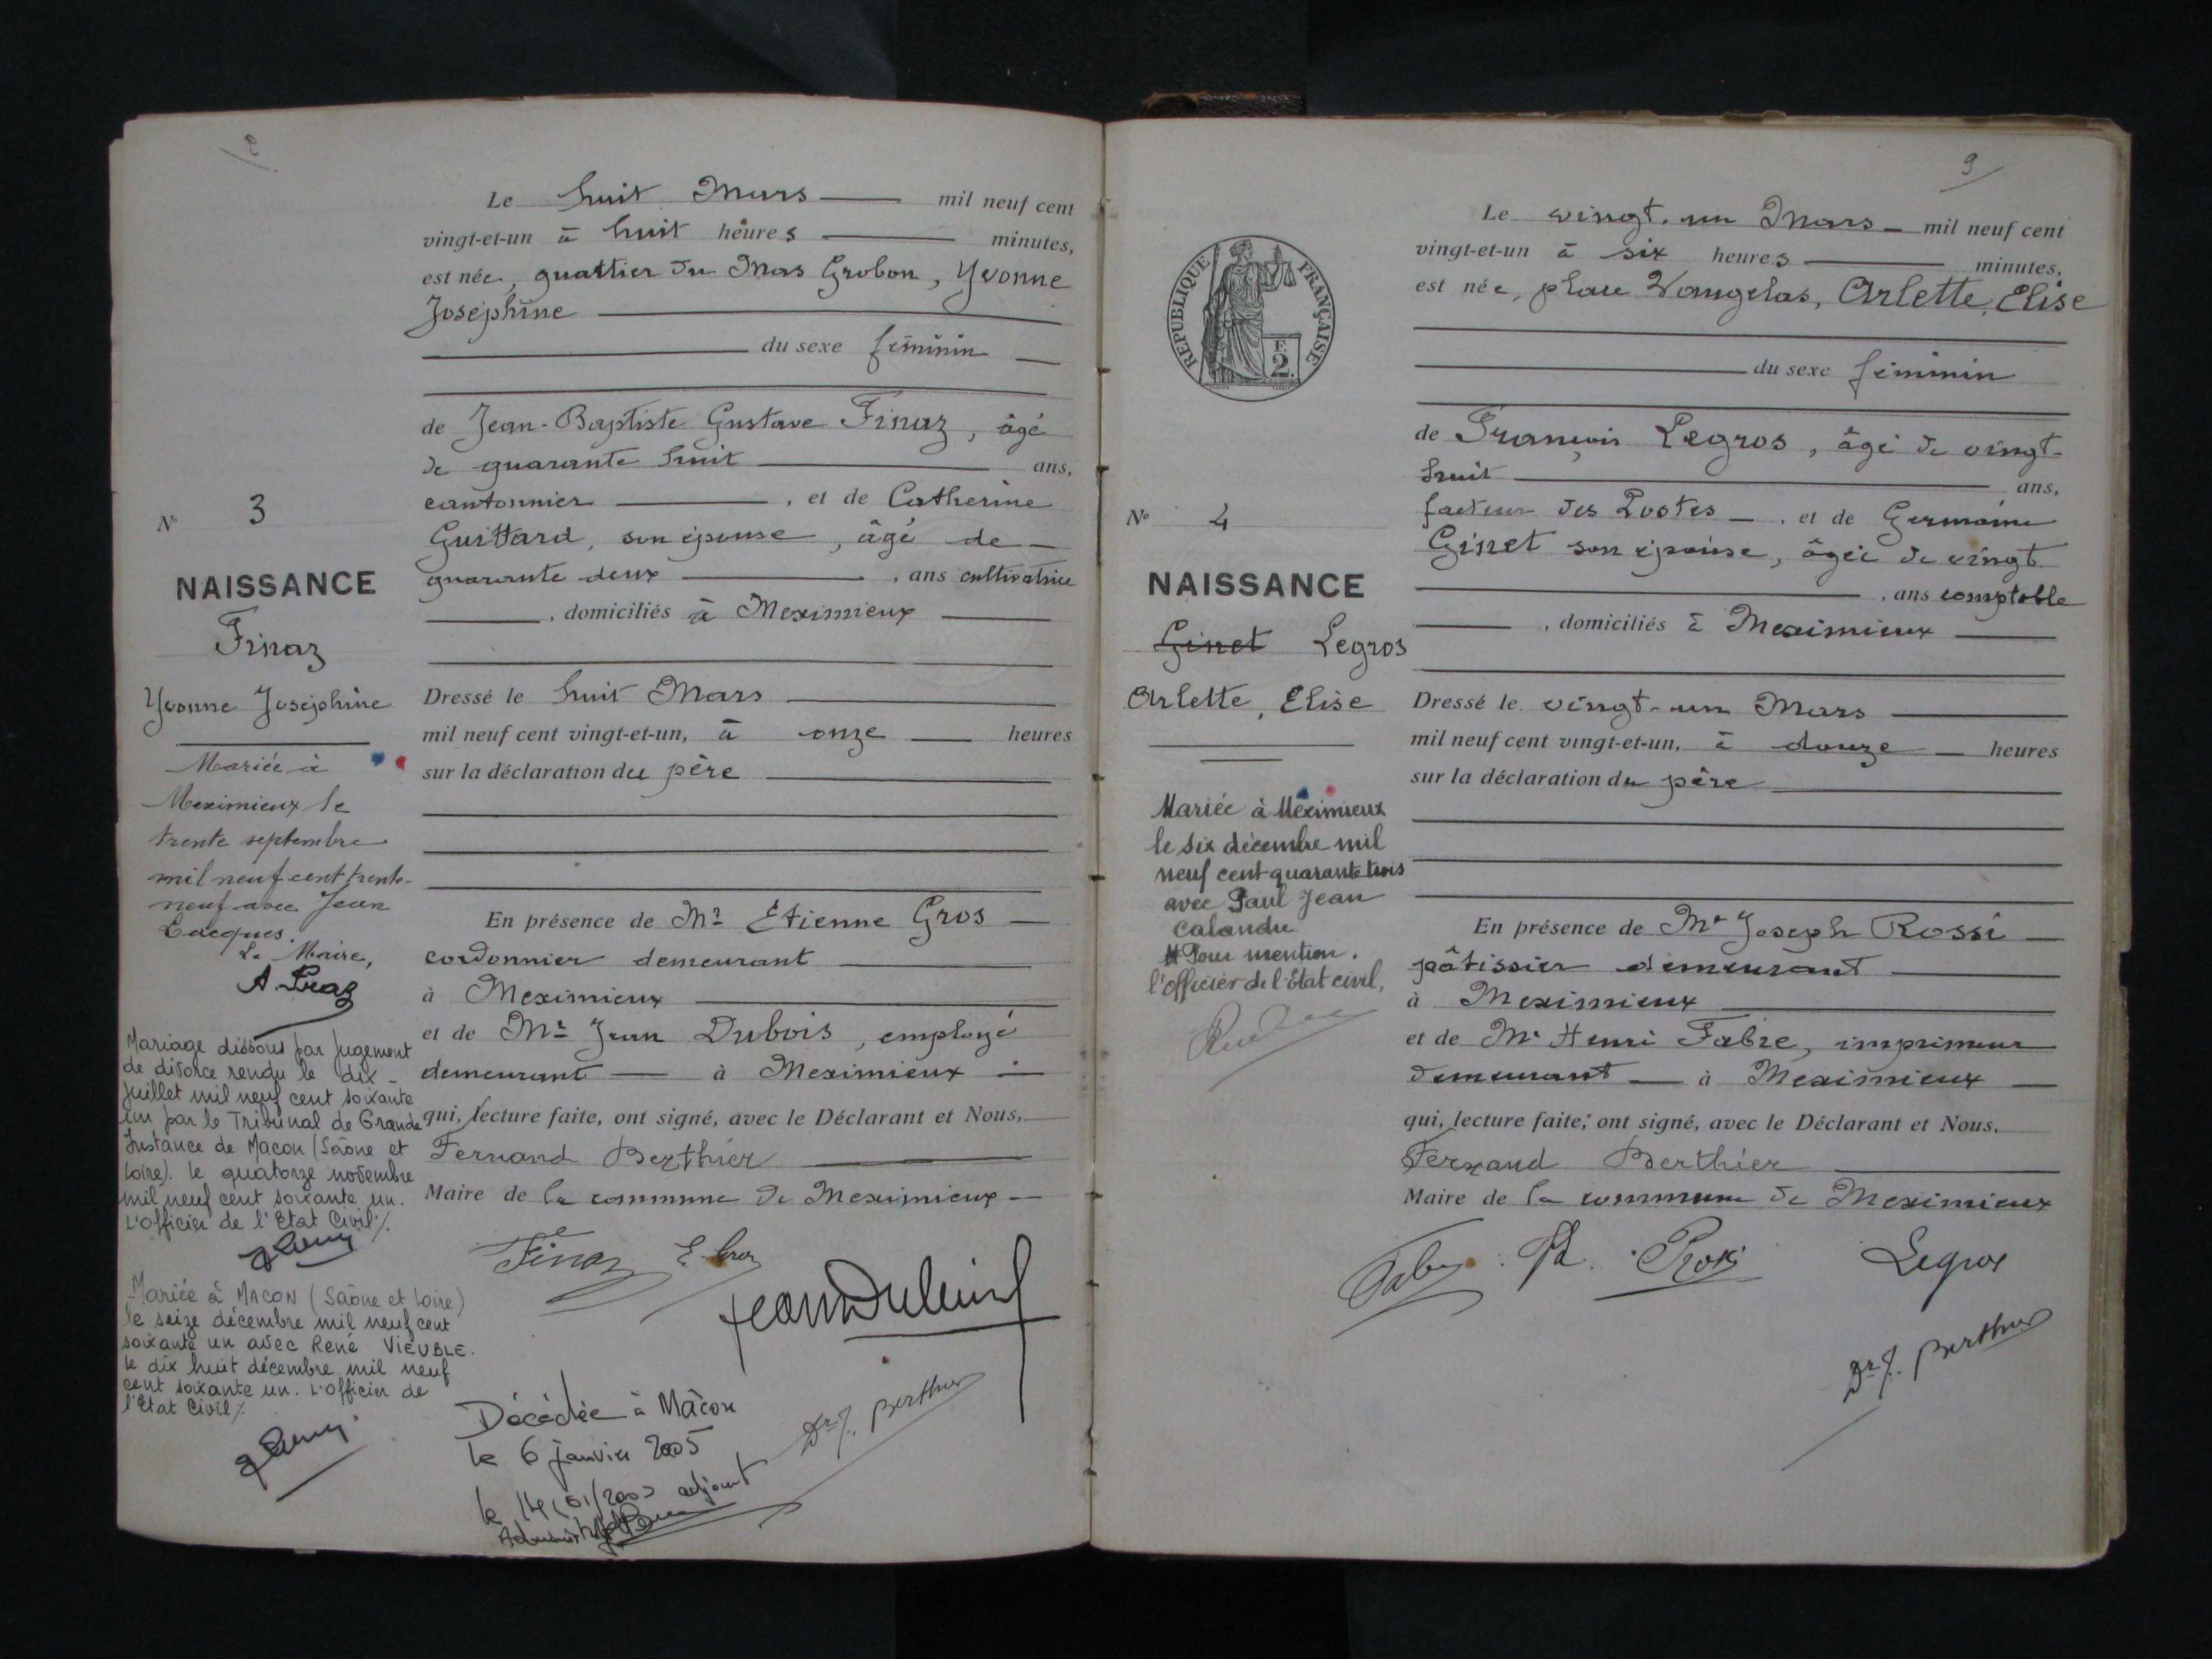 2
Le huit Mars mil neuf cent
vingt-et-un à huit heures minutes,
est née, quartier du Mas Grobon, Yvonne
Joséphine
du sexe féminin
de Jean-Baptiste Gustave Finaz, âgé
de quarante huit ans,
cantonnier , et de Catherine
Guittard, son épouse, âgé de
quarante deux , ans cultivatrice
, domiciliés à Meximieux
Dressé le huit Mars
mil neuf cent vingt-et-un, à onze heures
sur la déclaration du père
En présence de Mr Etienne Gros
cordonnier demeurant
à Meximieux
et de Mr Jean Dubois, employé
demeurant à Meximieux
qui, lecture faite, ont signé, avec le Déclarant et Nous,
Fernand Berthier
Maire de la commune de Meximieux
Finaz E. Gros
Dr f. Berthier
Décédée à Mâcon
le 6 janvier 2005
adjoint
N° 3
NAISSANCE
Finaz
Yvonne Joséphine
Mariée à
Meximieux le
trente septembre
mil neuf cent trente-
neuf avec Jean
Lacques.
Le Maire,
Mariage dissous par jugement
de divorce rendu le dix-
juillet mil neuf cent soixante
un par le Tribunal de Grande
Instance de Macon (Saône et
Loire). le quatorze novembre
mil neuf cent soixante un.
L'Officier de l'Etat Civil ./.
Mariée à MACON (Saône et Loire)
le seize décembre mil neuf cent
soixante un avec René VIEUBLE.
le dix huit décembre mil neuf
cent soixante un. L'Officier de
l'Etat Civil ./.
9
REPUBLIQUE FRANÇAISE
F.
2.
Le vingt-un Mars mil neuf cent
vingt-et-un à six heures minutes,
est née, place Vaugelas, Arlette, Elise
du sexe féminin
de François Legros, âgé de vingt-
huit ans,
facteur des Postes , et de Germaine
Ginet son épouse, âgée de vingt
, ans comptable
, domiciliés à Meximieux
Dressé le vingt-un Mars
mil neuf cent vingt-et-un, à douze heures
sur la déclaration du père
En présence de Mr Joseph Rossi
pâtissier demeurant
à Meximieux
et de Mr Henri Fabre, imprimeur
demeurant à Meximieux
qui, lecture faite, ont signé, avec le Déclarant et Nous,
Fernand Berthier
Maire de la commune de Meximieux
Legros
Dr f. Berthier
N° 4
NAISSANCE
Ginet Legros
Arlette, Elise
Mariée à Meximieux
le six décembre mil
neuf cent quarante trois
avec Paul Jean
Calandre
Pour mention.
l'officier de l'Etat civil,